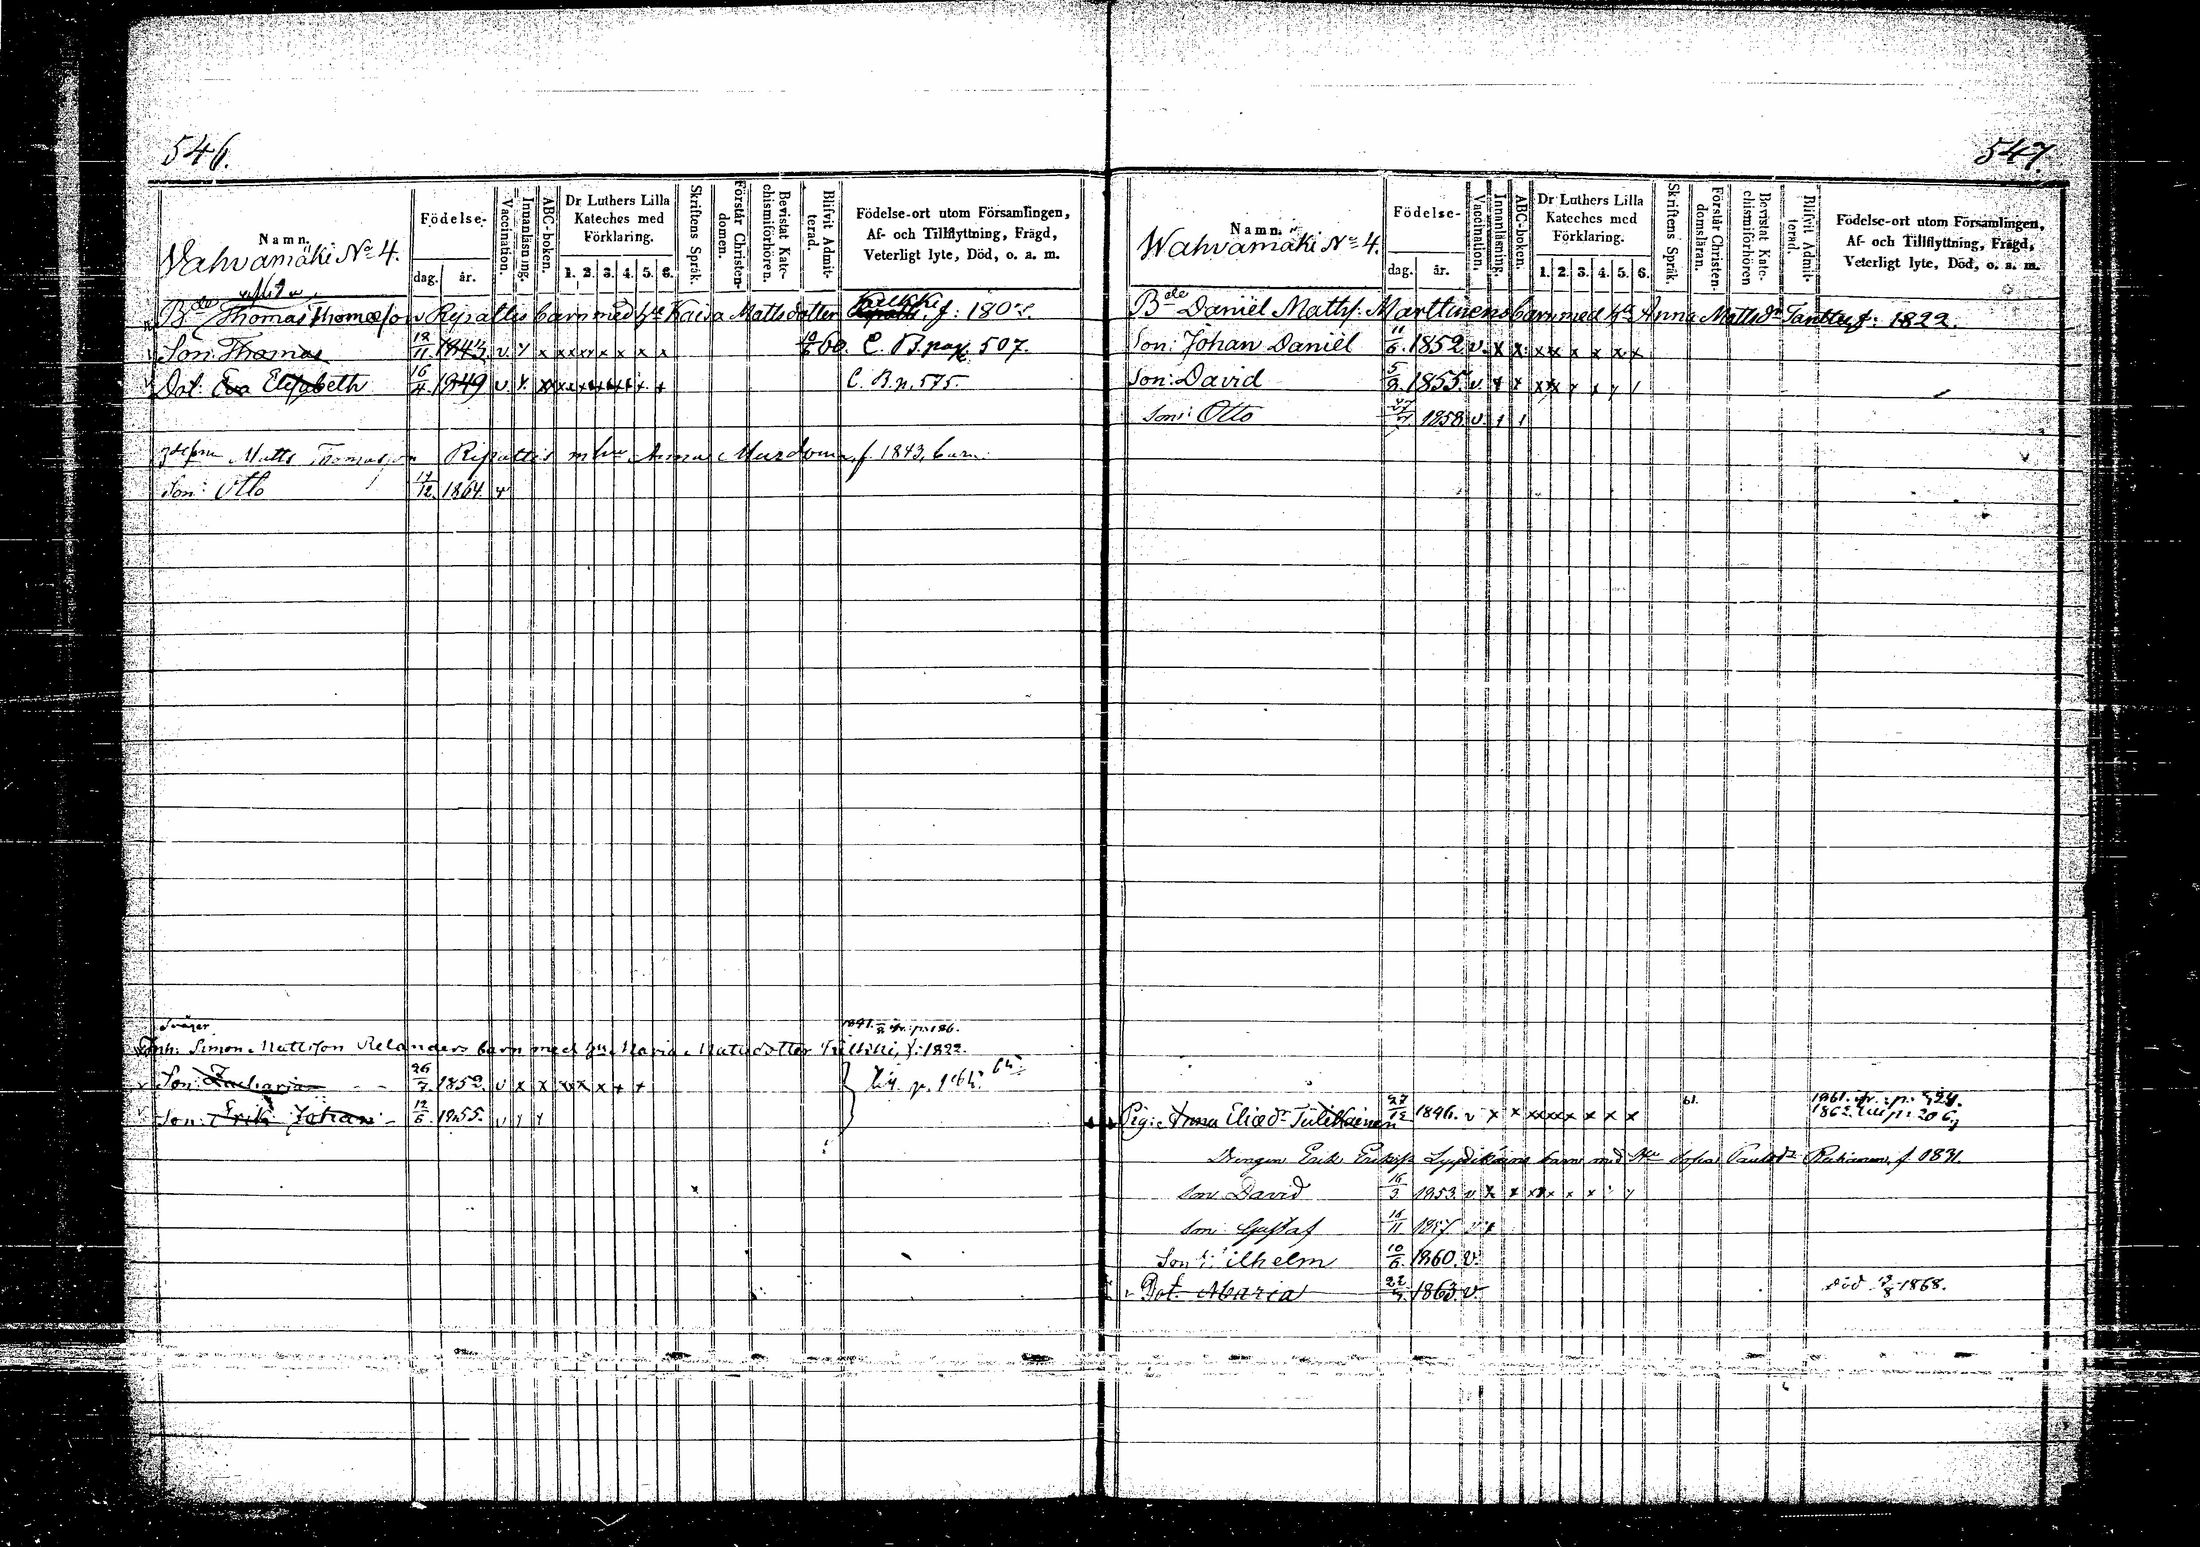 546.
Namn.
Wahvamäki No 4.
Födelse-
dag. år.
Vaccination.
Innanläsning.
ABC-boken.
Dr Luthers Lilla
Kateches med
Förklaring.
1. 2. 3. 4. 5. 6.
Skriftens Språk.
Förstår Christen-
domen.
Bevistat Kate-
chismiförhören.
Blifvit Admit-
terad.
Födelse-ort utom Församlingen,
Af- och Tillflyttning, Frägd,
Veterligt lyte, Död, o. a. m.
Bde Thomas Thomæson Ripattis barn med h:u Kaisa Mattsdotter
Son: Thomas 12/11 v x x x x x x x x 60. C. B. pag. 507.
Dot: Eva Elisabeth 16/4 1849 v. C. B. p. 575.
Matts Thomasson Ripattis m hu Anna Mustonen, f. 1843, barn
Son: Otto 1864.
Svåger
Simon Mattsson Relanders barn med hu Maria Matsdotter f: 1822.
Son: Zacharias 26/7 1852. v x x x x x x x
Son: Erik Johan 12/6 1855.
547.
Namn.
Wahvamäki No 4.
Födelse-
dag. år.
Vaccination.
Innanläsning.
ABC-boken.
Dr Luthers Lilla
Kateches med
Förklaring.
1. 2. 3. 4. 5. 6.
Skriftens Språk.
Förstår Christen-
domsläran.
Bevistat Kate-
chismiförhören
Blifvit Admit-
terad.
Födelse-ort utom Församlingen,
Af- och Tillflyttning, Frägd,
Veterligt lyte, Död, o. a. m.
Bde Daniel Mattss. Marttinens barn med hu Anna Mattsdr Tanttu, f: 1822.
Son: Johan Daniel 11/6. 1852 v. x x x x x x x x
Son: David 5/8. 1855. v.
Son: Otto 1858 v.
61. 1861. fr. p:
1862. till p: 206.
Pig: Anna Eliædr 27/12 1846. v x x x x x x x x x
Drengen Erik Erikss. barn med Hu Sofia Paulsdr f. 1831.
Son David 16/3 1853. v
Son: Gustaf 16/11 1857.
Son: Wilhelm 10/6. 1860. v.
Dot: Maria 1863. v. död 1868.